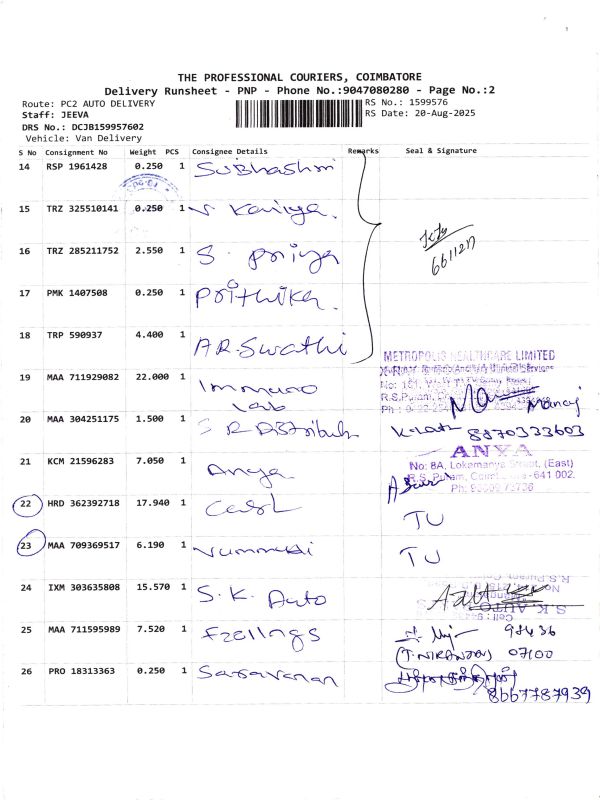 THE PROFESSIONAL COURIERS, COIMBATORE
Delivery Runsheet - PNP - Phone No.:9047080280 - Page No.:2
Route: PC2 AUTO DELIVERY
RS No.: 1599576
Staff: JEEVA
RS Date: 20-Aug-2025
DRS No.: DCJB159957602
Vehicle: Van Delivery
S No Consignment No Weight PCS Consignee Details Remarks Seal & Signature
14 RSP 1961428 0.250 1 Subhashni
15 TRZ 325510141 0.250 1 V Kaviya.
16 TRZ 285211752 2.550 1 S. Priya
661127
17 PMK 1407508 0.250 1 Prithika.
18 TRP 590937 4.400 1 AR.Swathi
METROPOLIS HEALTHCARE LIMITED
19 MAA 711929082 22.000 1 Immuno
Lab
R.S.Puram,
Manoj
20 MAA 304251175 1.500 1 S R Distributr
8870333603
ANYA
21 KCM 21596283 7.050 1 Anya
No: 8A, Lokamanya Street, (East)
R.S. Puram, Coimbatore - 641 002.
22 HRD 362392718 17.940 1 TU
23 MAA 709369517 6.190 1 Vummidi TU
24 IXM 303635808 15.570 1 S.K. Auto
S K AUTO
25 MAA 711595989 7.520 1 Feelings 98436
07100
26 PRO 18313363 0.250 1 Saravanan
8667787939